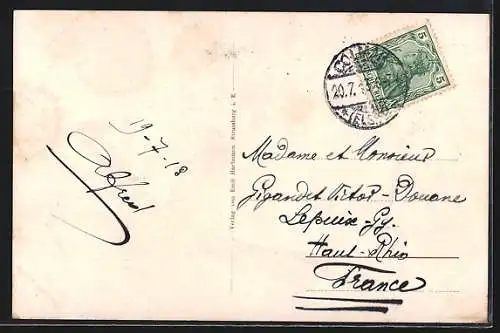 19-7-13
Alfred
Verlag von Emil Hartmann, Strassburg i. E.
5 5
COLMAR
20.7.13
*(ELS.
Madame et Monsieur
Gigandet Victor - Douane
Lepuix-Gy.
Haut-Rhin
France